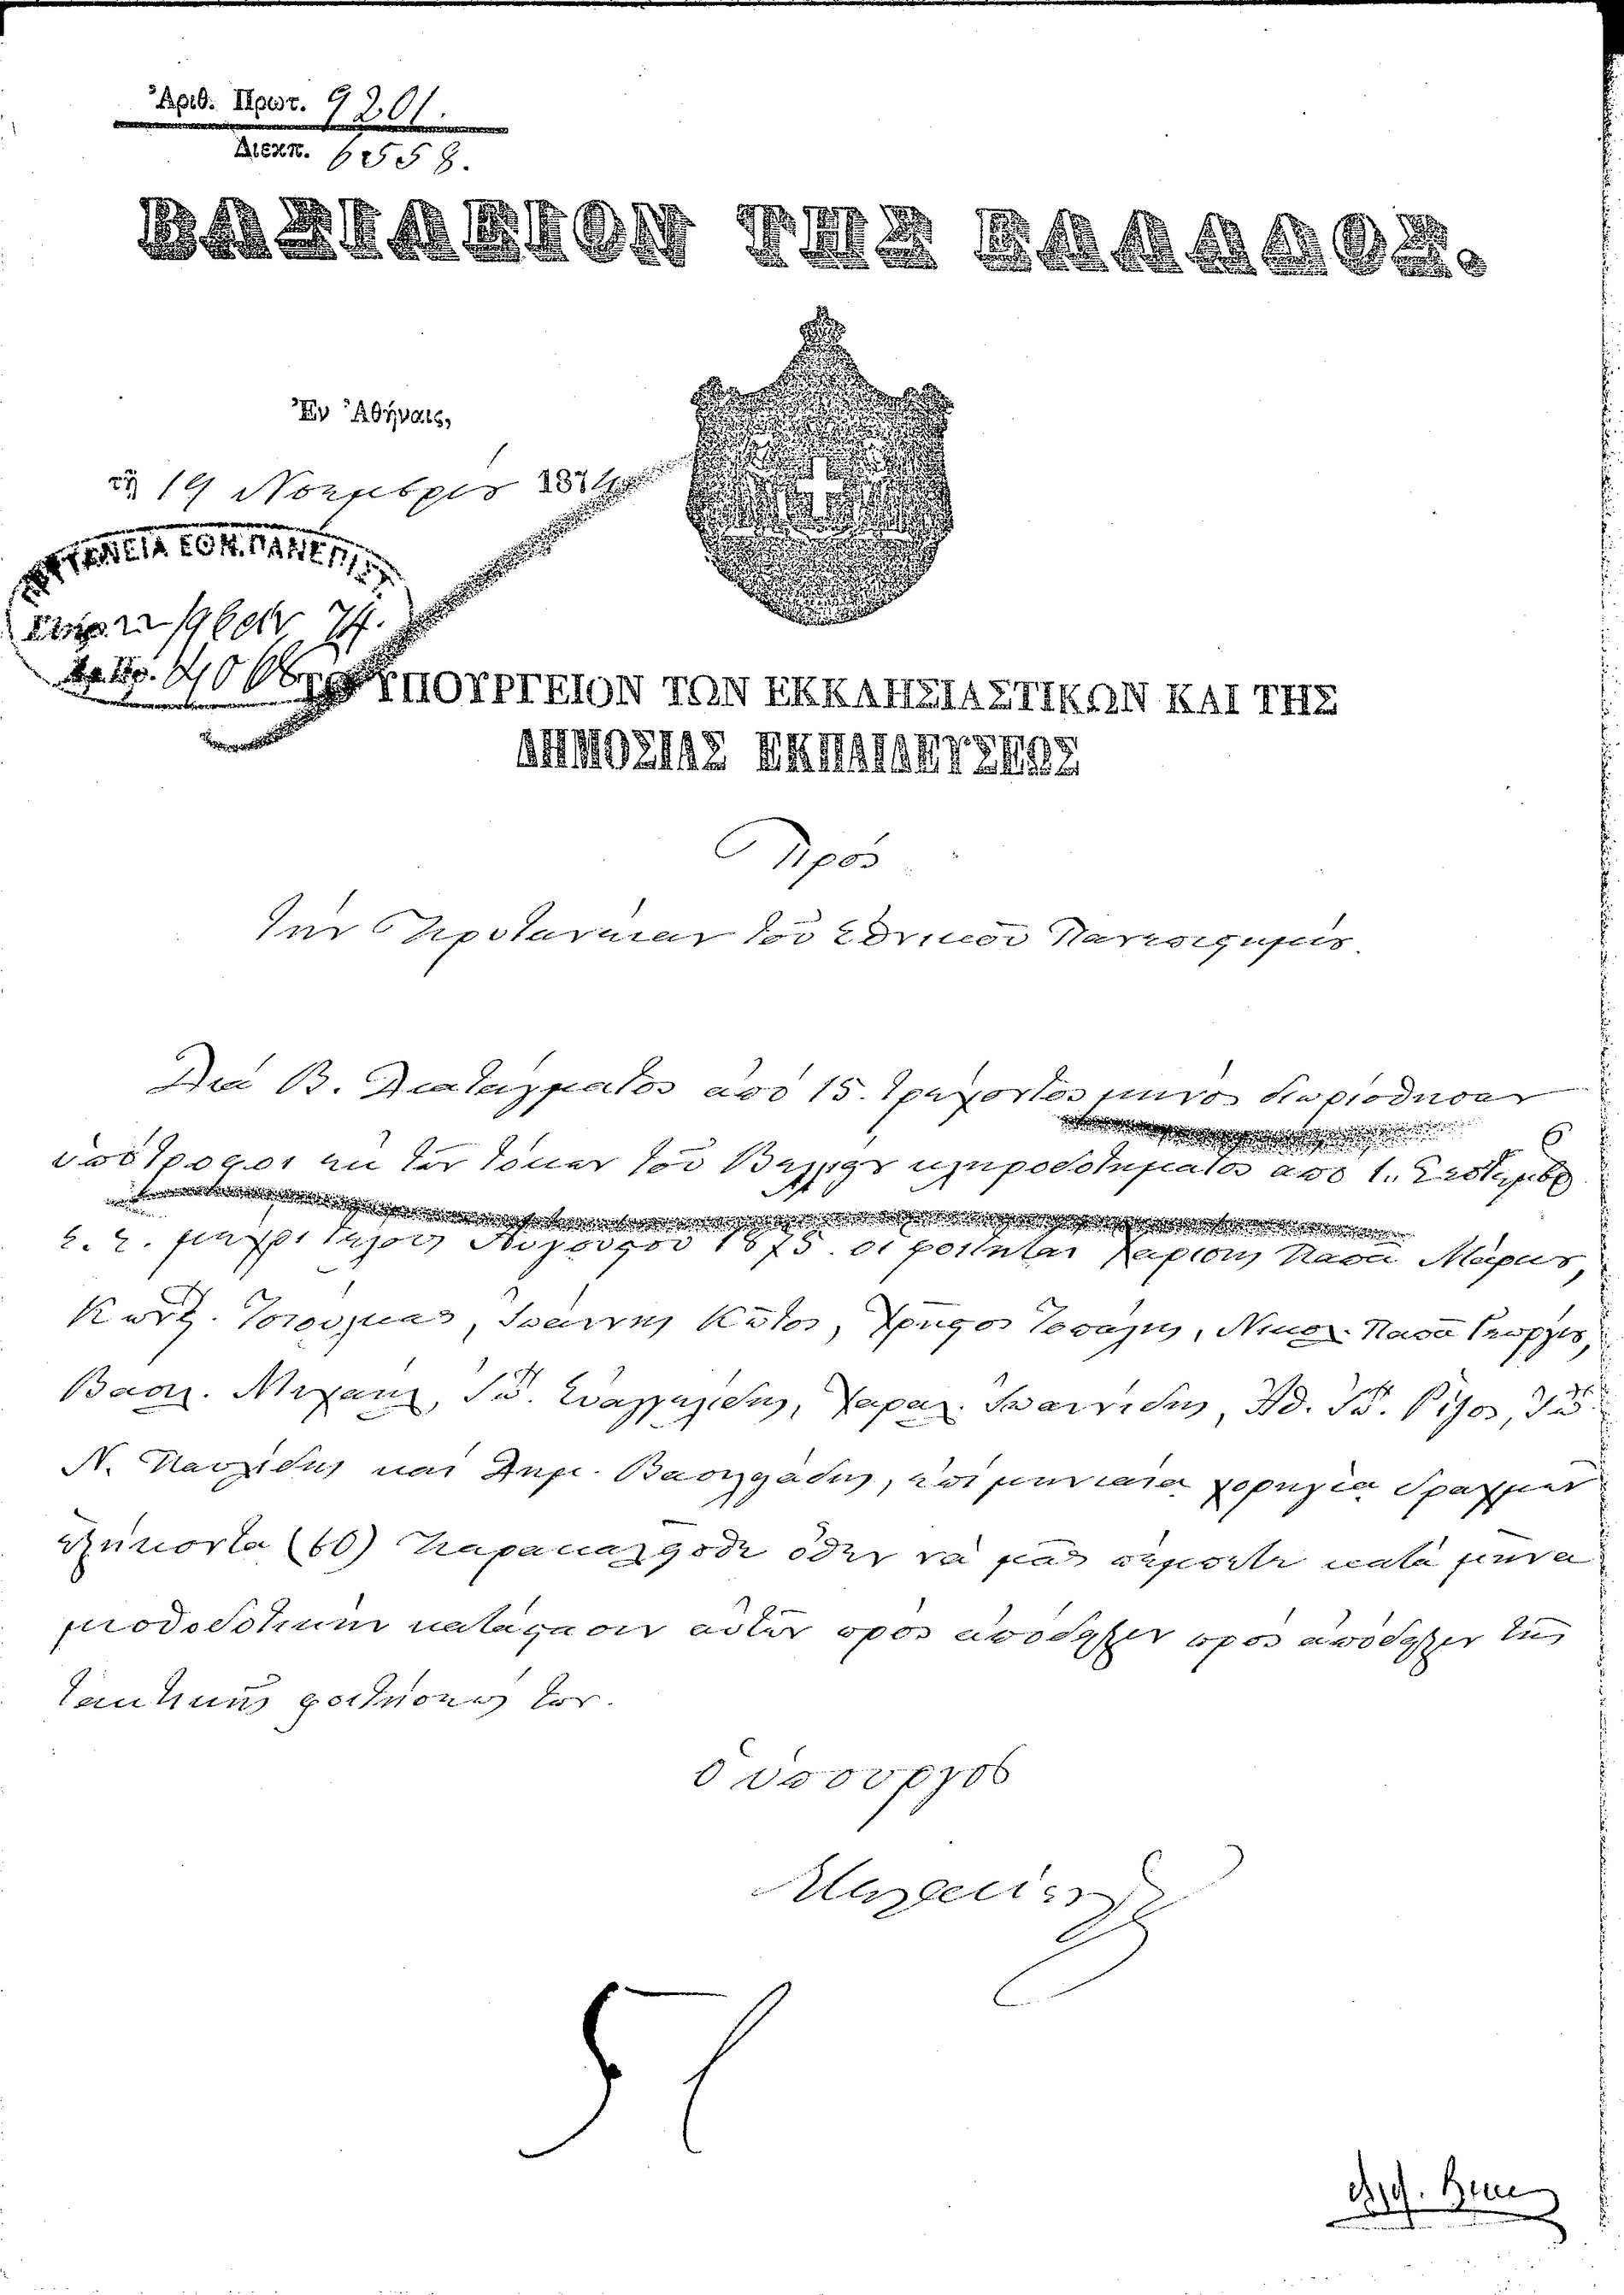 Ἀριθ. Πρωτ. 9201.
Διεκπ. 6558.
ΒΑΣΙΛΕΙΟΝ ΤΗΣ ΕΛΛΑΔΟΣ.
Ἐν Ἀθήναις,
τῇ 19 Νοεμβρίου 1874
ΠΡΥΤΑΝΕΙΑ ΕΘΝ. ΠΑΝΕΠΙΣΤ.
22 9βρ 74.
Ἀρ. Πρ.
ΤΟ ΥΠΟΥΡΓΕΙΟΝ ΤΩΝ ΕΚΚΛΗΣΙΑΣΤΙΚΩΝ ΚΑΙ ΤΗΣ
ΔΗΜΟΣΙΑΣ ΕΚΠΑΙΔΕΥΣΕΩΣ
Πρὸς
Τὴν Πρυτανείαν τοῦ Ἐθνικοῦ Πανεπιστημίου.
Διὰ Β. Διατάγματος ἀπὸ 15. τρέχοντος μηνὸς διωρίσθησαν
ὑπότροφοι ἐκ τῶν τόκων τοῦ Βελλίου κληροδοτήματος ἀπὸ 1. Σεπτεμβ
ἐ. ἔ. μέχρι τέλους Αὐγούστου 1875. οἱ φοιτηταὶ Χαρίσης Παπᾶ Μάρκου,
Κωνστ. , Ἰωάννης , , Νικολ. Παπᾶ Γεωργίου,
Βασιλ. , Ἰω. , Χαραλ. Ἰωαννίδης, Ἀθ. Ἰω. Ῥίζος, Ἰω
Ν. Παυλίδης καὶ Δημ. Βασιλειάδης, ἐπὶ μηνιαίᾳ χορηγίᾳ δραχμῶν
ἑξήκοντα (60) Παρακαλεῖσθε ὅθεν νὰ μᾶς πέμπητε κατὰ μῆνα
μισθοδοτικὴν κατάστασιν αὐτῶν πρὸς ἀπόδειξιν πρὸς ἀπόδειξιν τῆς
τακτικῆς φοιτήσεώς των.
ὁ ὑπουργὸς
51